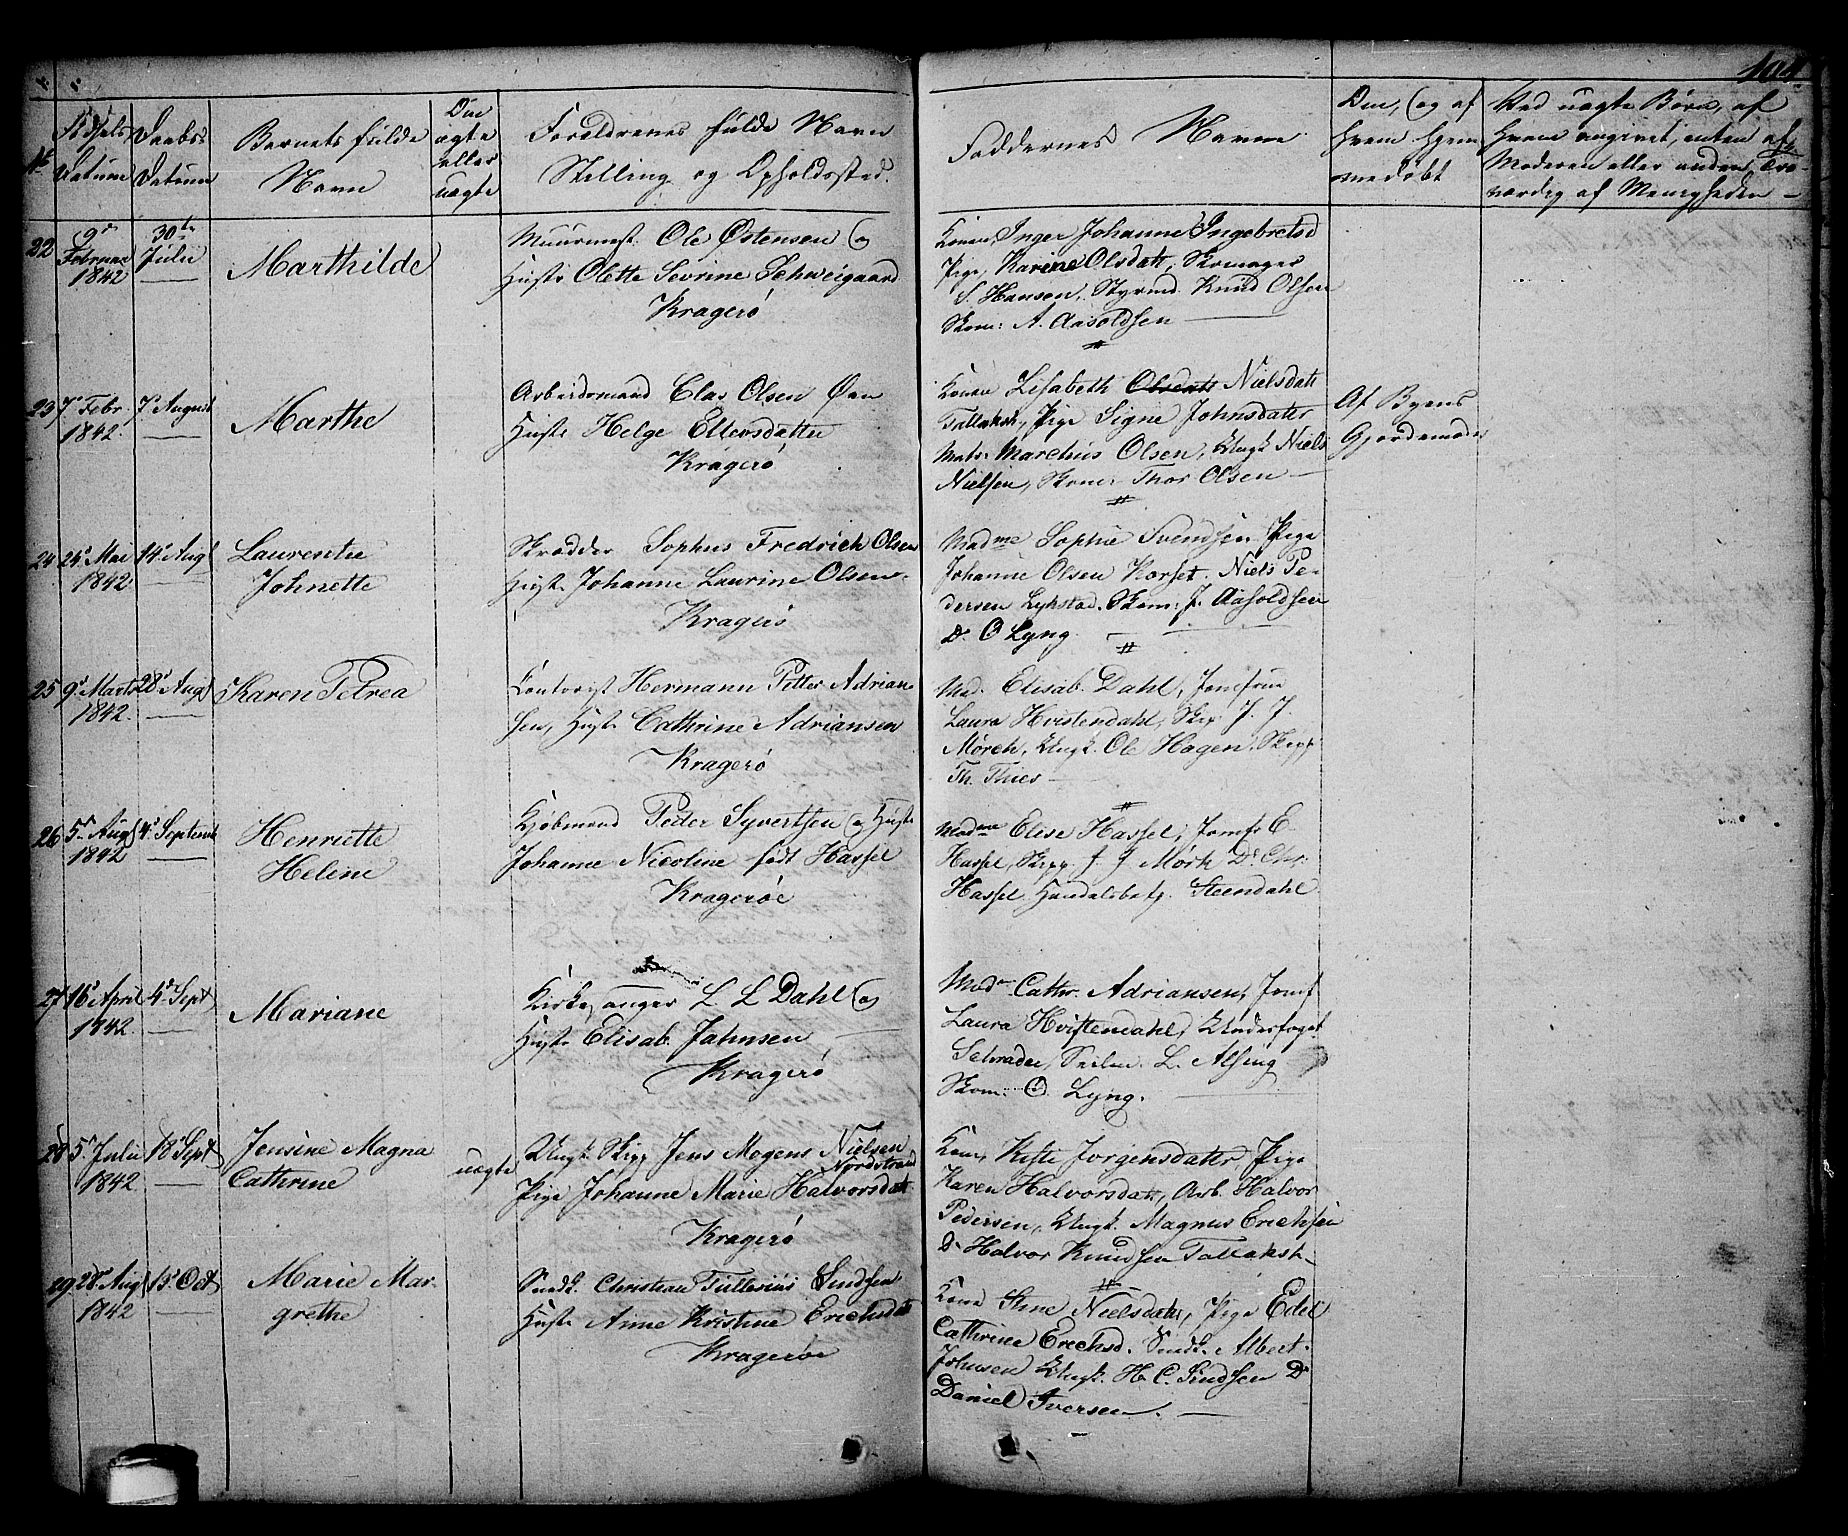 104
No
Fødsels Datum
Daabs Datum
Barnets fulde Navn
Om ægte eller uægte
Forældrenes fulde Navn
Stilling og Opholdssted.
Faddernes Navne
Om, og af Hvem Hjemmedøbt
Ved uægte Børn, af
Hvem angivet, enten af
Moderen eller anden Troværdig af Menigheden
22
9de Februar 1842
30te Julii
Marthilde
Muurmest. Ole Østensen og
Hustr Olette Severine Schweigaard
Kragerö
Konen Inger Johanne Ingebretsd
Pige, Karine Olsdatt, Skomager
S. Hansen, Styrmd. Knud Olsen
Skom: A. Aasoldsen
23
7de Febr. 1842.
7de August
Marthe
Arbeidsmand Elas Olsen Øen
Hustr Helge Ellevsdatter
Kragerö
Konen Lisabeth Olsdatt Nielsdatt
Tallaksh, Pige Signe Johnsdater
Mats. Marchus Olsen, Ungk Niels
Nielsen, Skom: Thor Olsen
Af Byens
Gjordemoder
24
24de Mai 1842
14de Augt
Laurentse
Johnette
Skrædder Sophus Fredrich Olsen
Hust. Johanne Laurine Olsen
Kragerö
Madme Sophie Svendsen Pige
Johanne Olsen Korset. Niels Pe-
dersen Lykstad. Skom: J. Aasoldsen
Do O Lyng.
25
9de Marts 1842.
28de Augt
Karen Petrea
Contorist Hermann Petter Adrian
sen, Hust. Cathrine Adriansen
Kragerö
Mad. Elisab. Dahl, Jomfrue
Laura Hvistendahl, Skip J. J.
Mörch, Ungk. Ole Hagen, Skipp
Th. Thies
26
5de Augt 1842
4de Septemb
Henriette
Helene
Kjøbmand Peder Syvertsen og Hustr
Johanne Nicoline født Hassel
Kragerøe
Madme Elise Hassel, Jomfr E.
Hassel, Skipp. J. J Mörk Do Chr.
Hassel, Handelsbetj. Steendahl
27
16de April 1842
4de Sept
Mariane
Kirkesanger L. L Dahl og
Hustr Elisab. Jahnsen
Kragerö
Madm Cathr. Adriansen, Jomf
Laura Hvistendahl, Underfoget
Schrader, Seilm. L. Alsing
Skom: O. Lyng.
28
5de Julii 1842
18de Sept
Jensine Magna
Cathrine
uægte
Ungk Skipp Jens Mogens Nielsen
Nordstrand
Pige Johanne Marie Halvorsdatt
Kragerö
Kone, Kisti Jorgensdatter Pige
Karen Halvorsdatt, Arb. Halvor
Pedersen, Ungk. Magnus Erichsen
Do Halvor Knudsen Tallaksh.
29
28de Augt 1842
15de Oct
Marie Mar
grethe
Snedk. Christian Tullesius Sindsen
Hustr Anne Kristine Erichsdatt
Kragerøe
Kone Stine Nielsdatt, Pige Edel
Cathrine Erechsd. Snedk. Albert
Johnsen Ungk. H. C. Sindsen Do
Daniel Iversen.